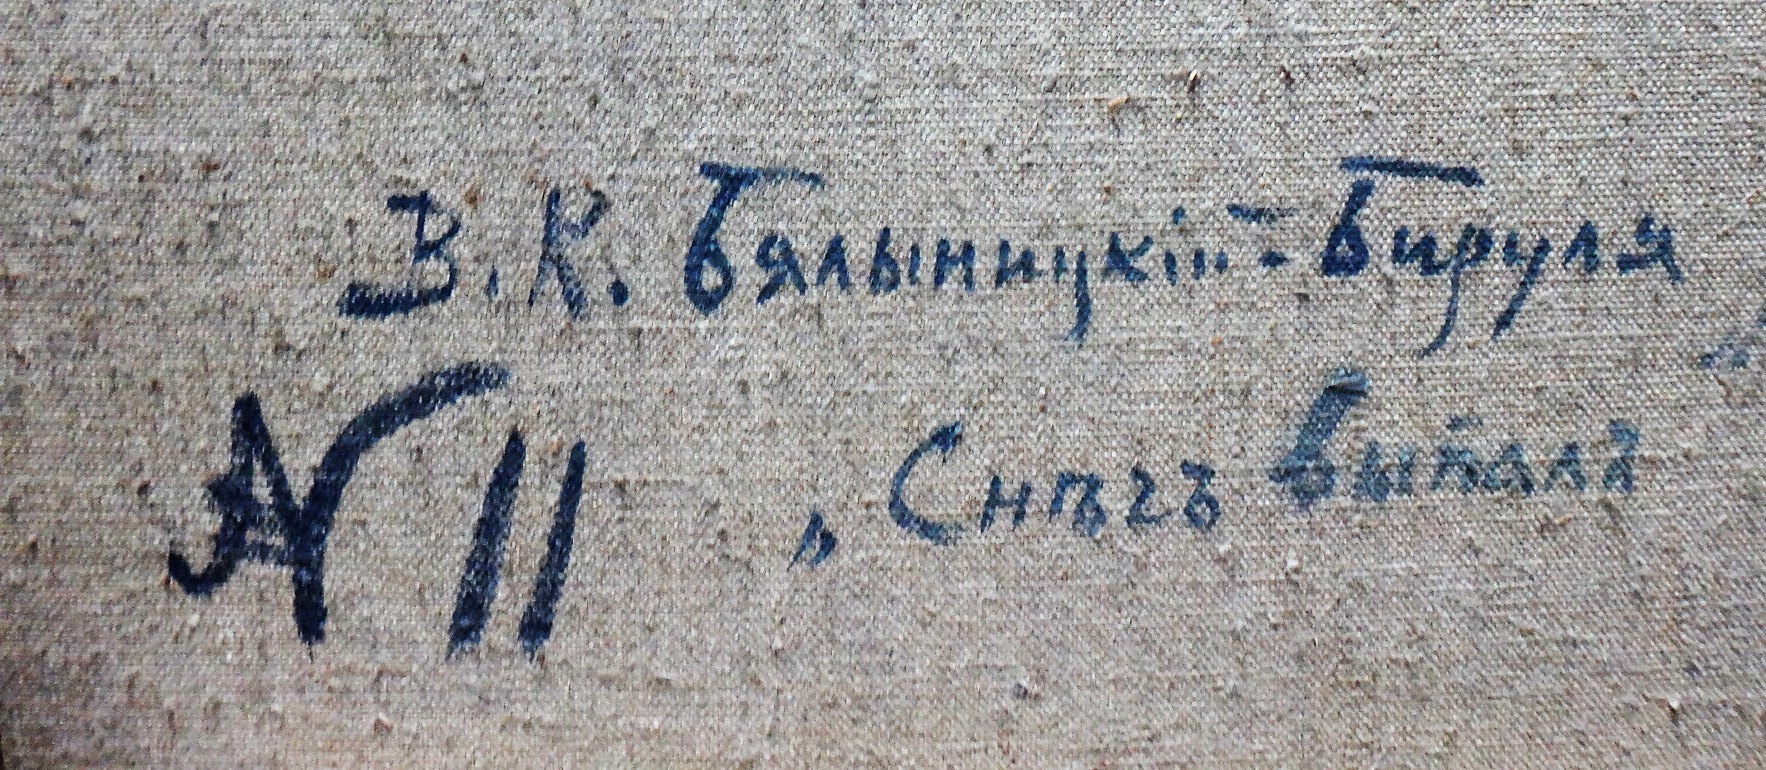 В. К. Бялыницкій-Бируля
№ 11 „Снѣгъ выпалъ